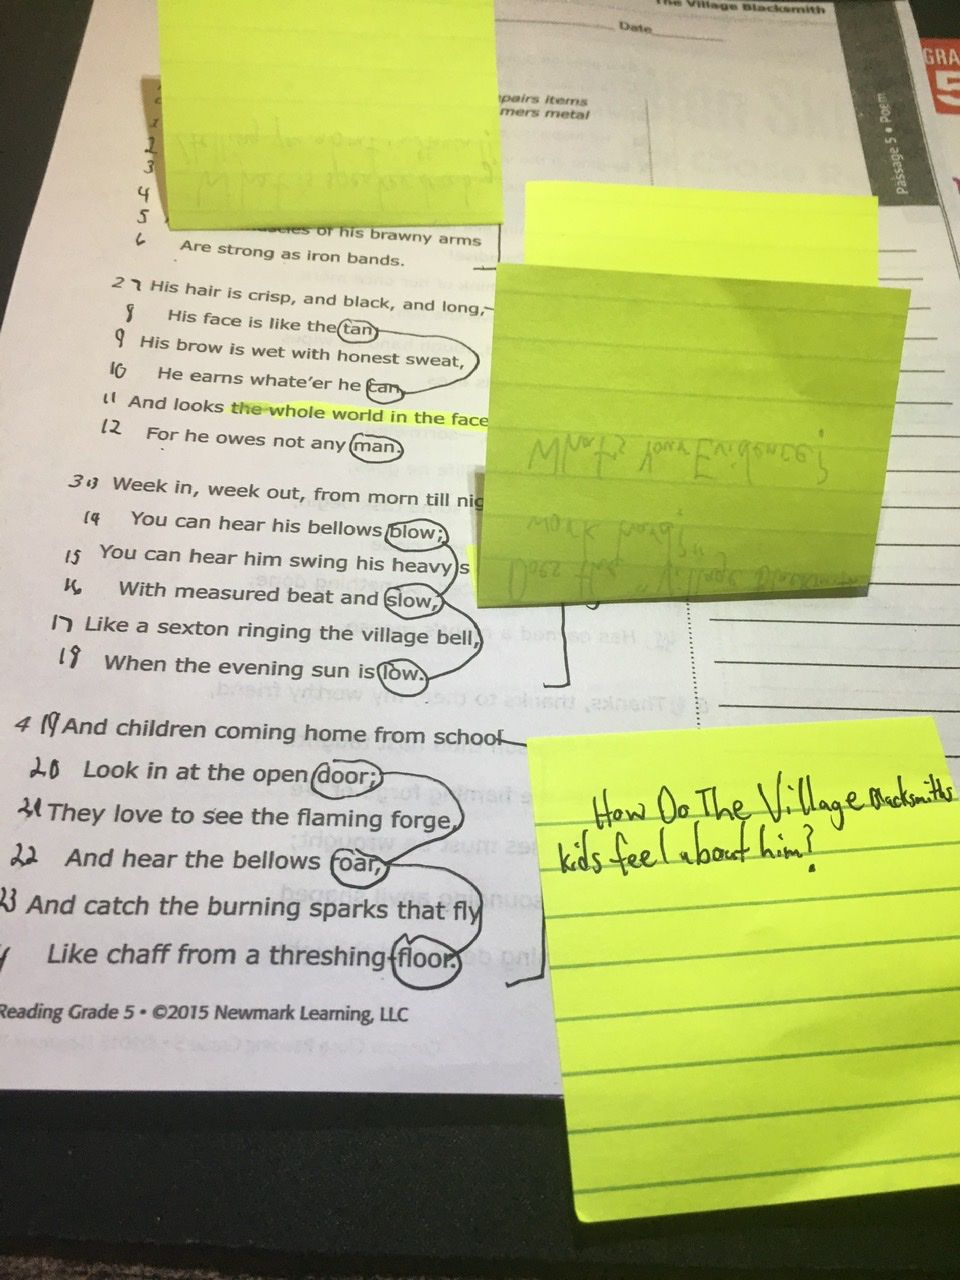 The Village Blacksmith
Date
GRA
5
Passage 5 • Poem
pairs items
mers metal
1
2
3
4
5
of his brawny arms
6 Are strong as iron bands.
2 7 His hair is crisp, and black, and long,
8 His face is like the tan,
9 His brow is wet with honest sweat,
10 He earns whate'er he can,
11 And looks the whole world in the face
12 For he owes not any man.
3 13 Week in, week out, from morn till nig
14 You can hear his bellows blow;
15 You can hear him swing his heavy s
16 With measured beat and slow,
17 Like a sexton ringing the village bell,
18 When the evening sun is low.
4 19 And children coming home from school
20 Look in at the open door;
21 They love to see the flaming forge,
22 And hear the bellows roar,
23 And catch the burning sparks that fly
Like chaff from a threshing-floor.
Reading Grade 5 • ©2015 Newmark Learning, LLC
What's your Evidence?
work hard?
Does the "Village Blacksmith"
How Do The Village Blacksmiths
kids feel about him?